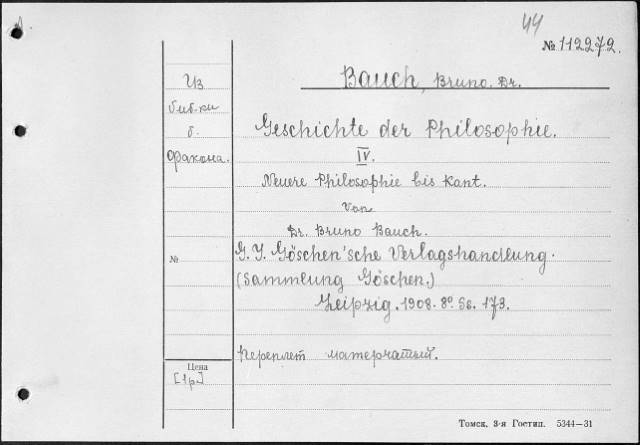 44
№ 112272.
Bauch, Bruno. Dr.
Из
биб-ки
б.
Фракона.
Geschichte der Philosophie.
IV.
Neuere Philosophie bis Kant.
Von
Dr. Bruno Bauch.
№
G. J. Göschen'sche Verlagshandlung.
(Sammlung Göschen.)
Leipzig. 1908. 8º. Ss. 173.
Переплет матерчатый.
Цена
[1р]
Томск, 3-я Гостип. 5344—31